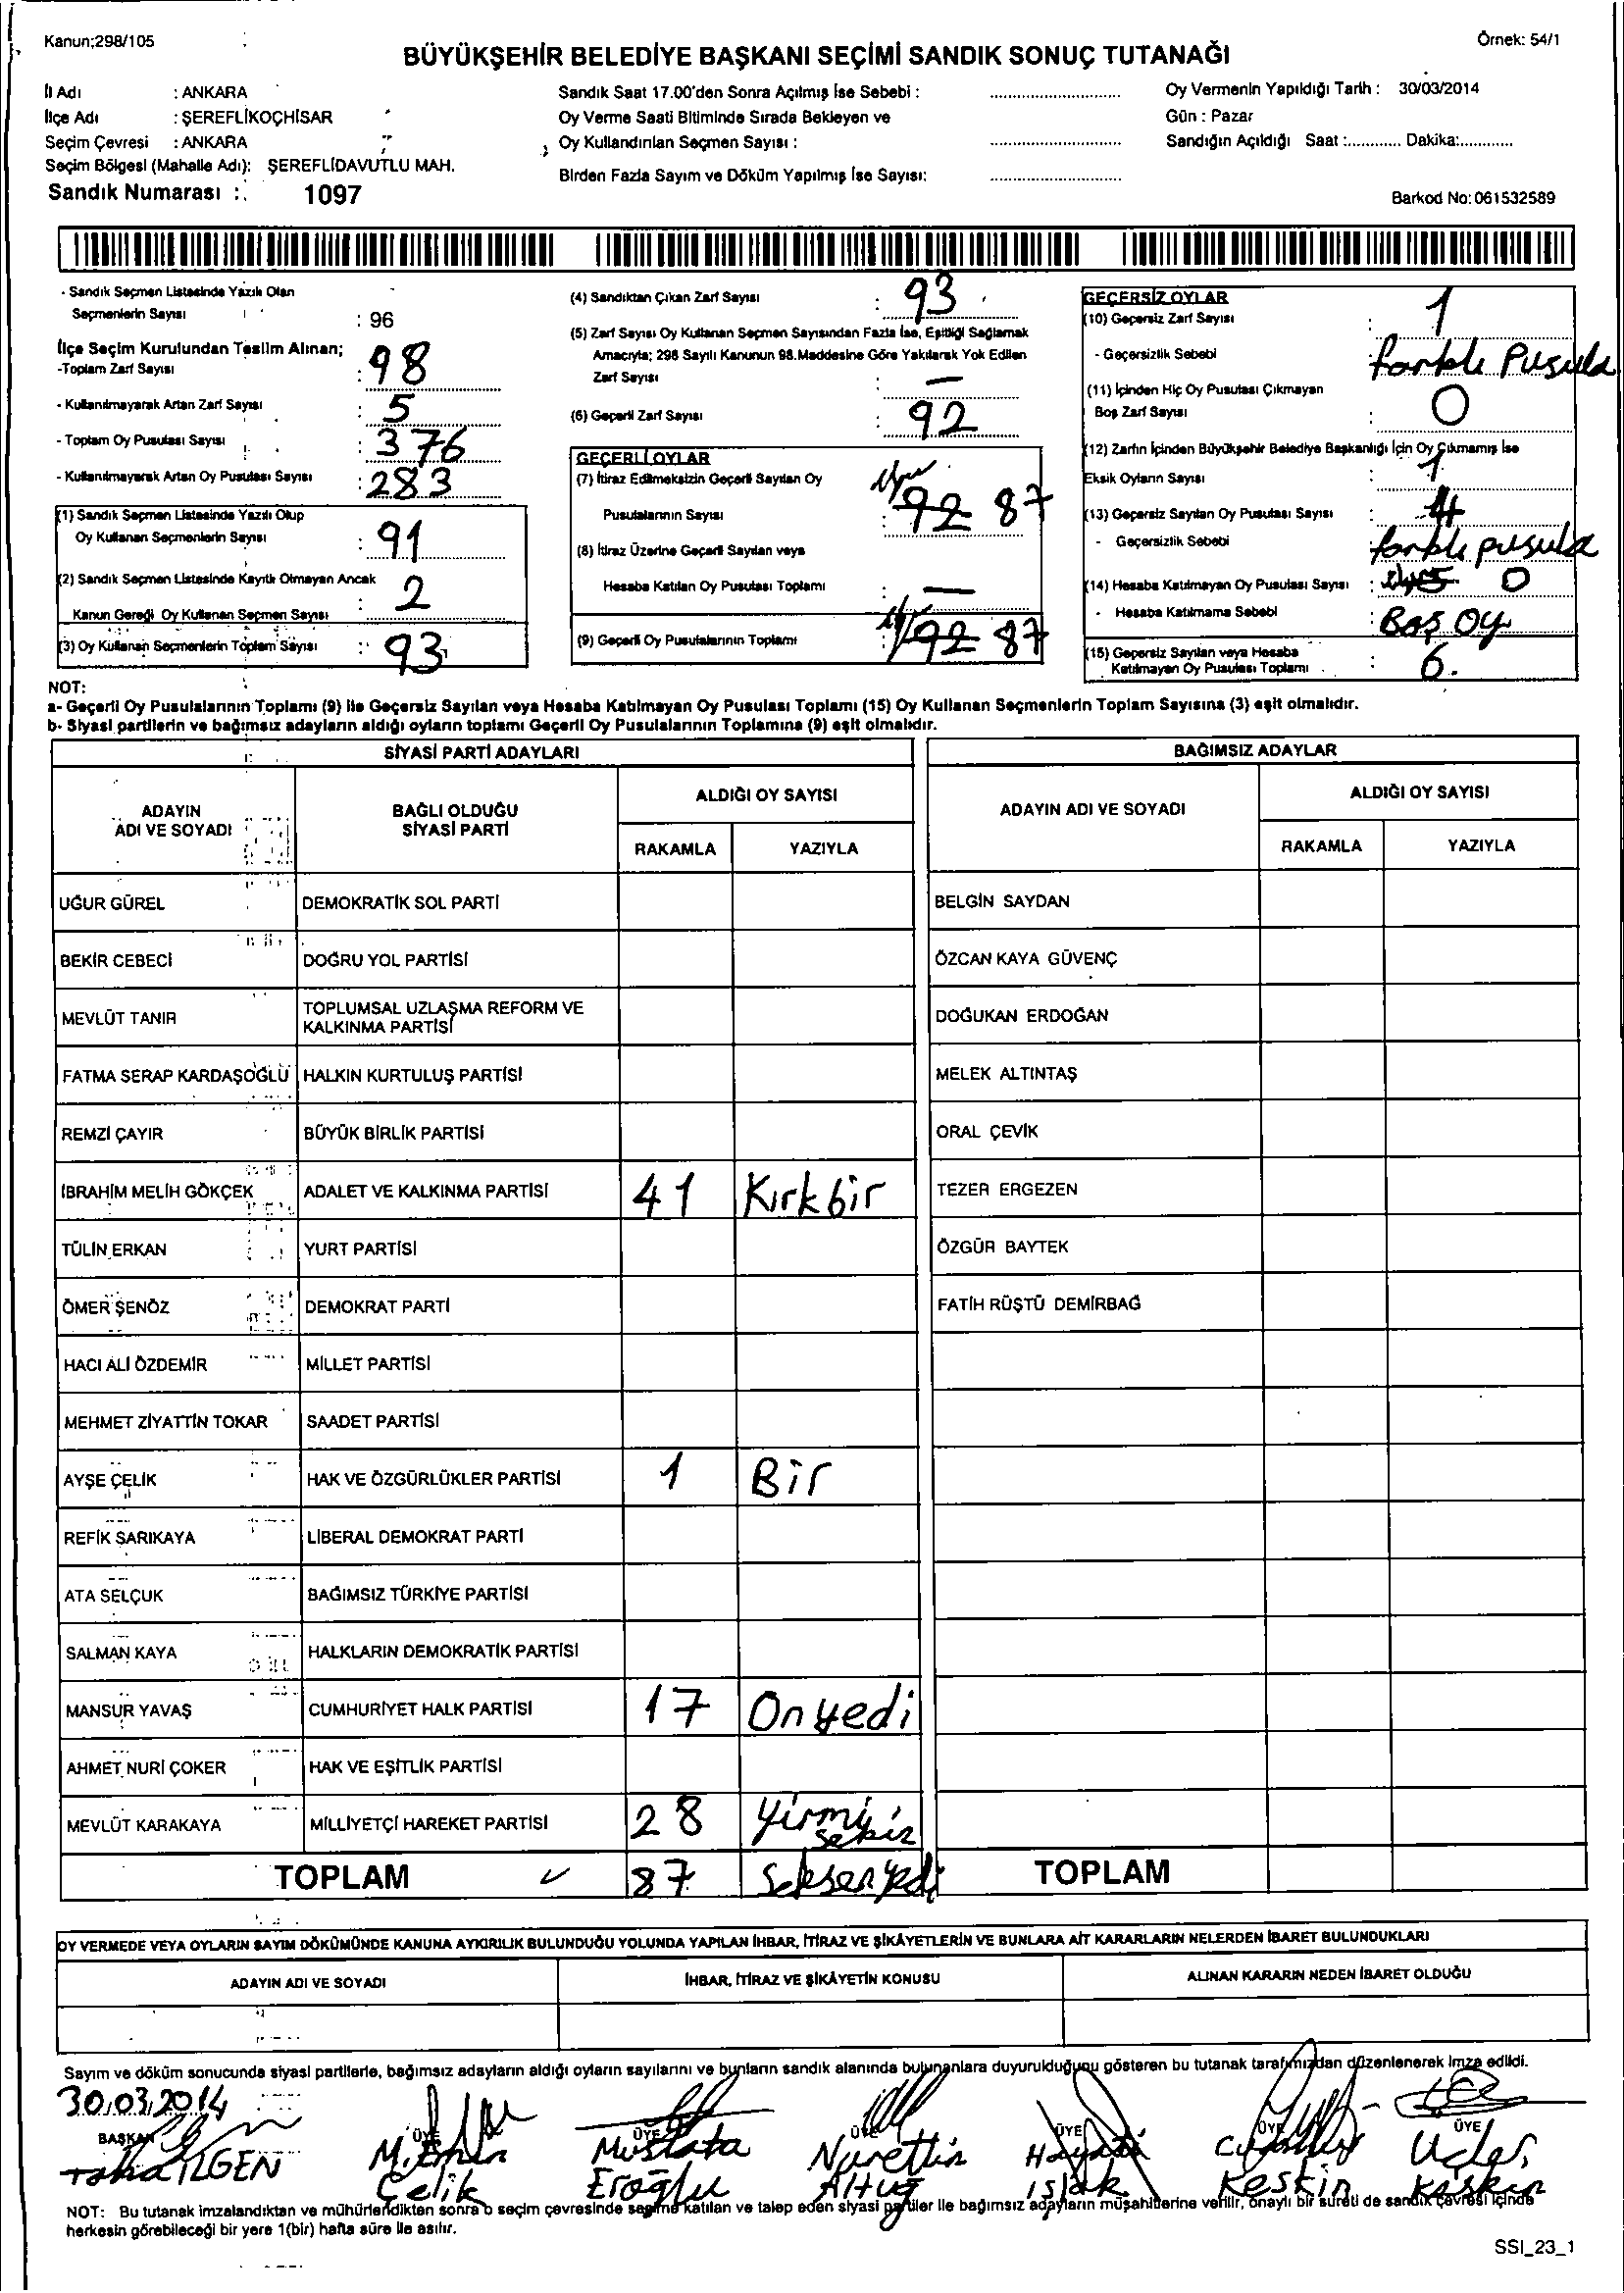 Kanun;298/105
Örnek: 54/1
BÜYÜKŞEHİR BELEDİYE BAŞKANI SEÇİMİ SANDIK SONUÇ TUTANAĞI
İl Adı : ANKARA
İlçe Adı : ŞEREFLİKOÇHİSAR
Seçim Çevresi : ANKARA
Seçim Bölgesi (Mahalle Adı): ŞEREFLİDAVUTLU MAH.
Sandık Numarası : 1097
Sandık Saat 17.00'den Sonra Açılmış İse Sebebi : ............................
Oy Verme Saati Bitiminde Sırada Bekleyen ve
Oy Kullandırılan Seçmen Sayısı : ............................
Birden Fazla Sayım ve Döküm Yapılmış İse Sayısı: ............................
Oy Vermenin Yapıldığı Tarih : 30/03/2014
Gün : Pazar
Sandığın Açıldığı Saat :............ Dakika:............
Barkod No: 061532589
- Sandık Seçmen Listesinde Yazılı Olan
Seçmenlerin Sayısı : 96
İlçe Seçim Kurulundan Teslim Alınan;
-Toplam Zarf Sayısı : 98
- Kullanılmayarak Artan Zarf Sayısı : 5
- Toplam Oy Pusulası Sayısı : 376
- Kullanılmayarak Artan Oy Pusulası Sayısı : 283
(1) Sandık Seçmen Listesinde Yazılı Olup
Oy Kullanan Seçmenlerin Sayısı : 91
(2) Sandık Seçmen Listesinde Kayıtlı Olmayan Ancak
Kanun Gereği Oy Kullanan Seçmen Sayısı : 2
(3) Oy Kullanan Seçmenlerin Toplam Sayısı : 93
(4) Sandıktan Çıkan Zarf Sayısı : 93
(5) Zarf Sayısı Oy Kullanan Seçmen Sayısından Fazla İse, Eşitliği Sağlamak
Amacıyla; 298 Sayılı Kanunun 98.Maddesine Göre Yakılarak Yok Edilen
Zarf Sayısı : —
(6) Geçerli Zarf Sayısı : 92
GEÇERLİ OYLAR
(7) İtiraz Edilmeksizin Geçerli Sayılan Oy
Pusulalarının Sayısı : 92 87
(8) İtiraz Üzerine Geçerli Sayılan veya
Hesaba Katılan Oy Pusulası Toplamı : —
(9) Geçerli Oy Pusulalarının Toplamı : 92 87
GEÇERSİZ OYLAR
(10) Geçersiz Zarf Sayısı : 1
- Geçersizlik Sebebi : farklı Pusula
(11) İçinden Hiç Oy Pusulası Çıkmayan
Boş Zarf Sayısı : 0
(12) Zarfın İçinden Büyükşehir Belediye Başkanlığı İçin Oy Çıkmamış İse
Eksik Oyların Sayısı : 1
(13) Geçersiz Sayılan Oy Pusulası Sayısı : 4
- Geçersizlik Sebebi : farklı pusula
(14) Hesaba Katılmayan Oy Pusulası Sayısı : 0
- Hesaba Katılmama Sebebi : Boş Oy
(15) Geçersiz Sayılan veya Hesaba
Katılmayan Oy Pusulası Toplamı : 6.
NOT:
a- Geçerli Oy Pusulalarının Toplamı (9) ile Geçersiz Sayılan veya Hesaba Katılmayan Oy Pusulası Toplamı (15) Oy Kullanan Seçmenlerin Toplam Sayısına (3) eşit olmalıdır.
b- Siyasi partilerin ve bağımsız adayların aldığı oyların toplamı Geçerli Oy Pusulalarının Toplamına (9) eşit olmalıdır.
SİYASİ PARTİ ADAYLARI
ADAYIN ADI VE SOYADI
BAĞLI OLDUĞU SİYASİ PARTİ
ALDIĞI OY SAYISI
RAKAMLA YAZIYLA
UĞUR GÜREL DEMOKRATİK SOL PARTİ
BEKİR CEBECİ DOĞRU YOL PARTİSİ
MEVLÜT TANIR TOPLUMSAL UZLAŞMA REFORM VE KALKINMA PARTİSİ
FATMA SERAP KARDAŞOĞLU HALKIN KURTULUŞ PARTİSİ
REMZİ ÇAYIR BÜYÜK BİRLİK PARTİSİ
İBRAHİM MELİH GÖKÇEK ADALET VE KALKINMA PARTİSİ 41 Kırkbir
TÜLİN ERKAN YURT PARTİSİ
ÖMER ŞENÖZ DEMOKRAT PARTİ
HACI ALİ ÖZDEMİR MİLLET PARTİSİ
MEHMET ZİYATTİN TOKAR SAADET PARTİSİ
AYŞE ÇELİK HAK VE ÖZGÜRLÜKLER PARTİSİ 1 Bir
REFİK SARIKAYA LİBERAL DEMOKRAT PARTİ
ATA SELÇUK BAĞIMSIZ TÜRKİYE PARTİSİ
SALMAN KAYA HALKLARIN DEMOKRATİK PARTİSİ
MANSUR YAVAŞ CUMHURİYET HALK PARTİSİ 17 Onyedi
AHMET NURİ ÇOKER HAK VE EŞİTLİK PARTİSİ
MEVLÜT KARAKAYA MİLLİYETÇİ HAREKET PARTİSİ 28 Yirmi sekiz
TOPLAM 87 Seksenyedi
BAĞIMSIZ ADAYLAR
ADAYIN ADI VE SOYADI
ALDIĞI OY SAYISI
RAKAMLA YAZIYLA
BELGİN SAYDAN
ÖZCAN KAYA GÜVENÇ
DOĞUKAN ERDOĞAN
MELEK ALTINTAŞ
ORAL ÇEVİK
TEZER ERGEZEN
ÖZGÜR BAYTEK
FATİH RÜŞTÜ DEMİRBAĞ
TOPLAM
OY VERMEDE VEYA OYLARIN SAYIM DÖKÜMÜNDE KANUNA AYKIRILIK BULUNDUĞU YOLUNDA YAPILAN İHBAR, İTİRAZ VE ŞİKÂYETLERİN VE BUNLARA AİT KARARLARIN NELERDEN İBARET BULUNDUKLARI
ADAYIN ADI VE SOYADI
İHBAR, İTİRAZ VE ŞİKÂYETİN KONUSU
ALINAN KARARIN NEDEN İBARET OLDUĞU
Sayım ve döküm sonucunda siyasi partilerle, bağımsız adayların aldığı oyların sayılarını ve bunların sandık alanında bulunanlara duyurulduğunu gösteren bu tutanak tarafımızdan düzenlenerek imza edildi.
30.03.2014
BAŞKAN ÜYE ÜYE ÜYE ÜYE ÜYE ÜYE
Taha İLGEN
M.Emin Çelik
Mustafa Eroğlu
Nurettin Altuğ
Hayati Işlak
Keskin
Keskin
NOT: Bu tutanak imzalandıktan ve mühürlendikten sonra o seçim çevresinde seçime katılan ve talep eden siyasi partiler ile bağımsız adayların müşahitlerine verilir, onaylı bir sureti de sandık çevresi içinde
herkesin görebileceği bir yere 1(bir) hafta süre ile asılır.
SSI_23_1